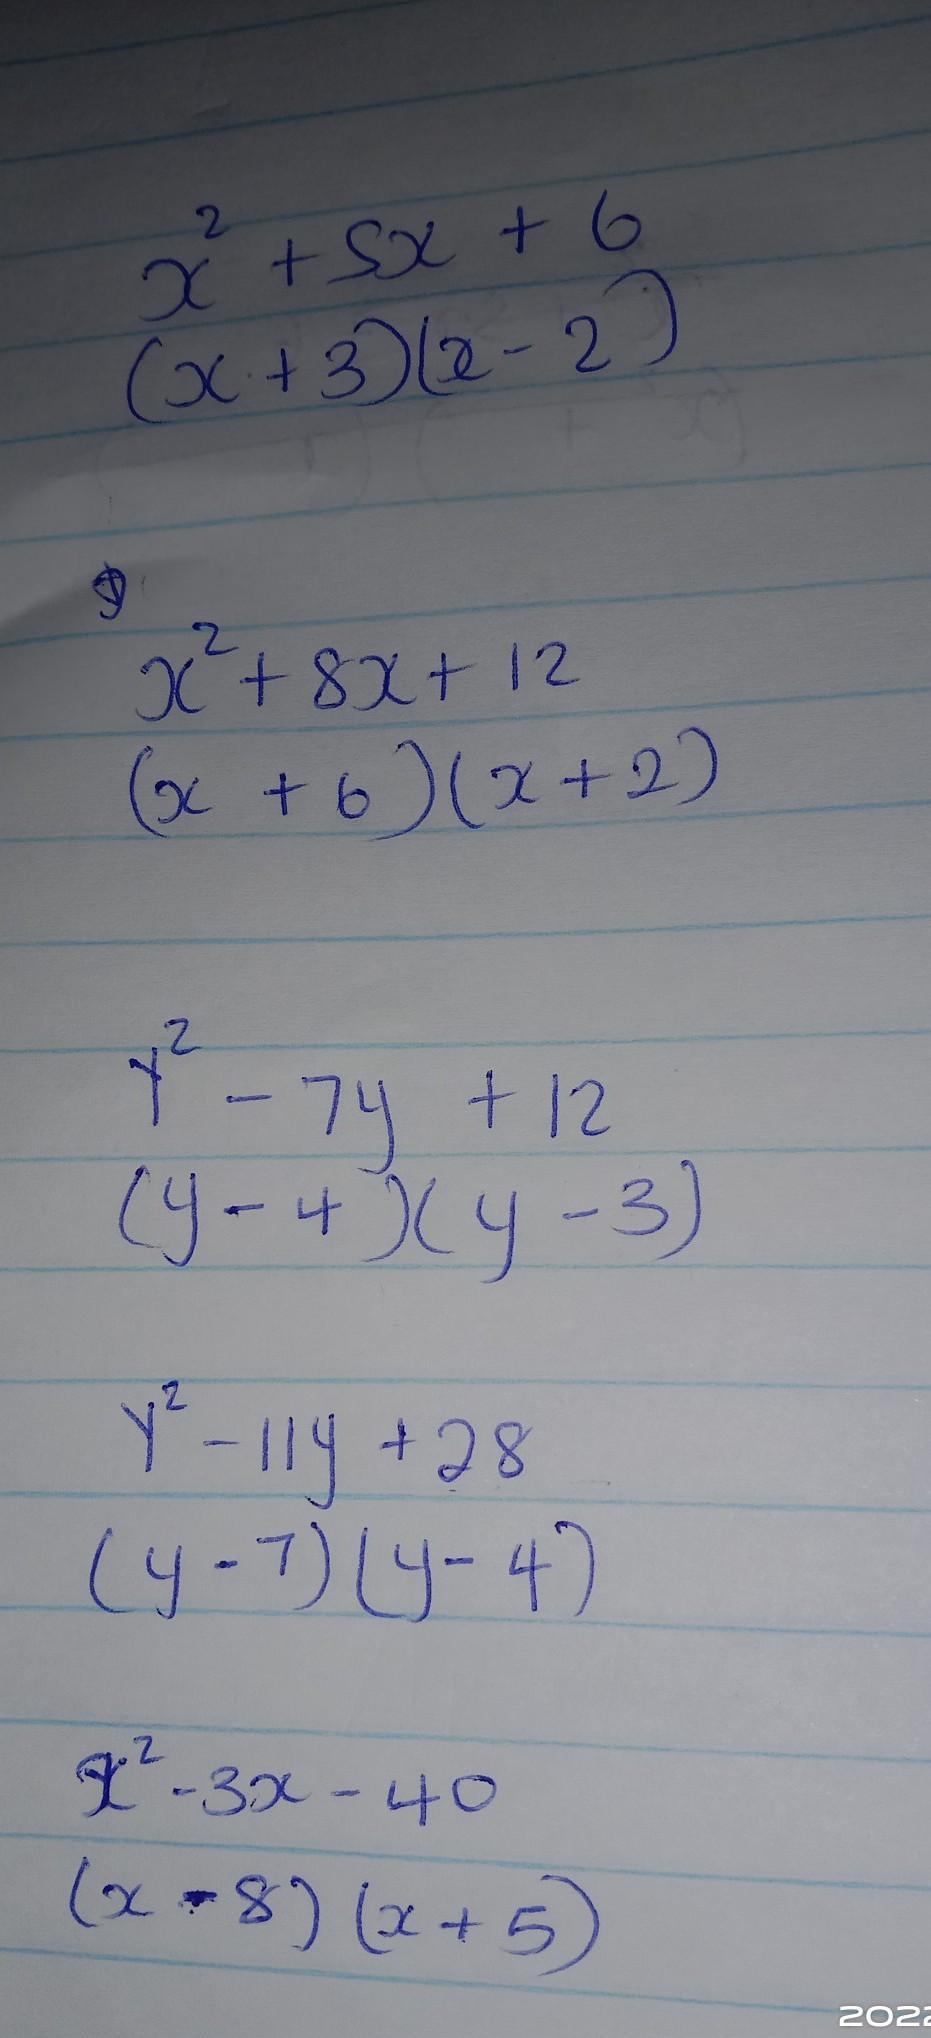 x² + 5x + 6
(x + 3)(x - 2)
x² + 8x + 12
(x + 6)(x + 2)
y² - 7y + 12
(y - 4)(y - 3)
y² - 11y + 28
(y - 7)(y - 4)
x² - 3x - 40
(x - 8)(x + 5)
2022